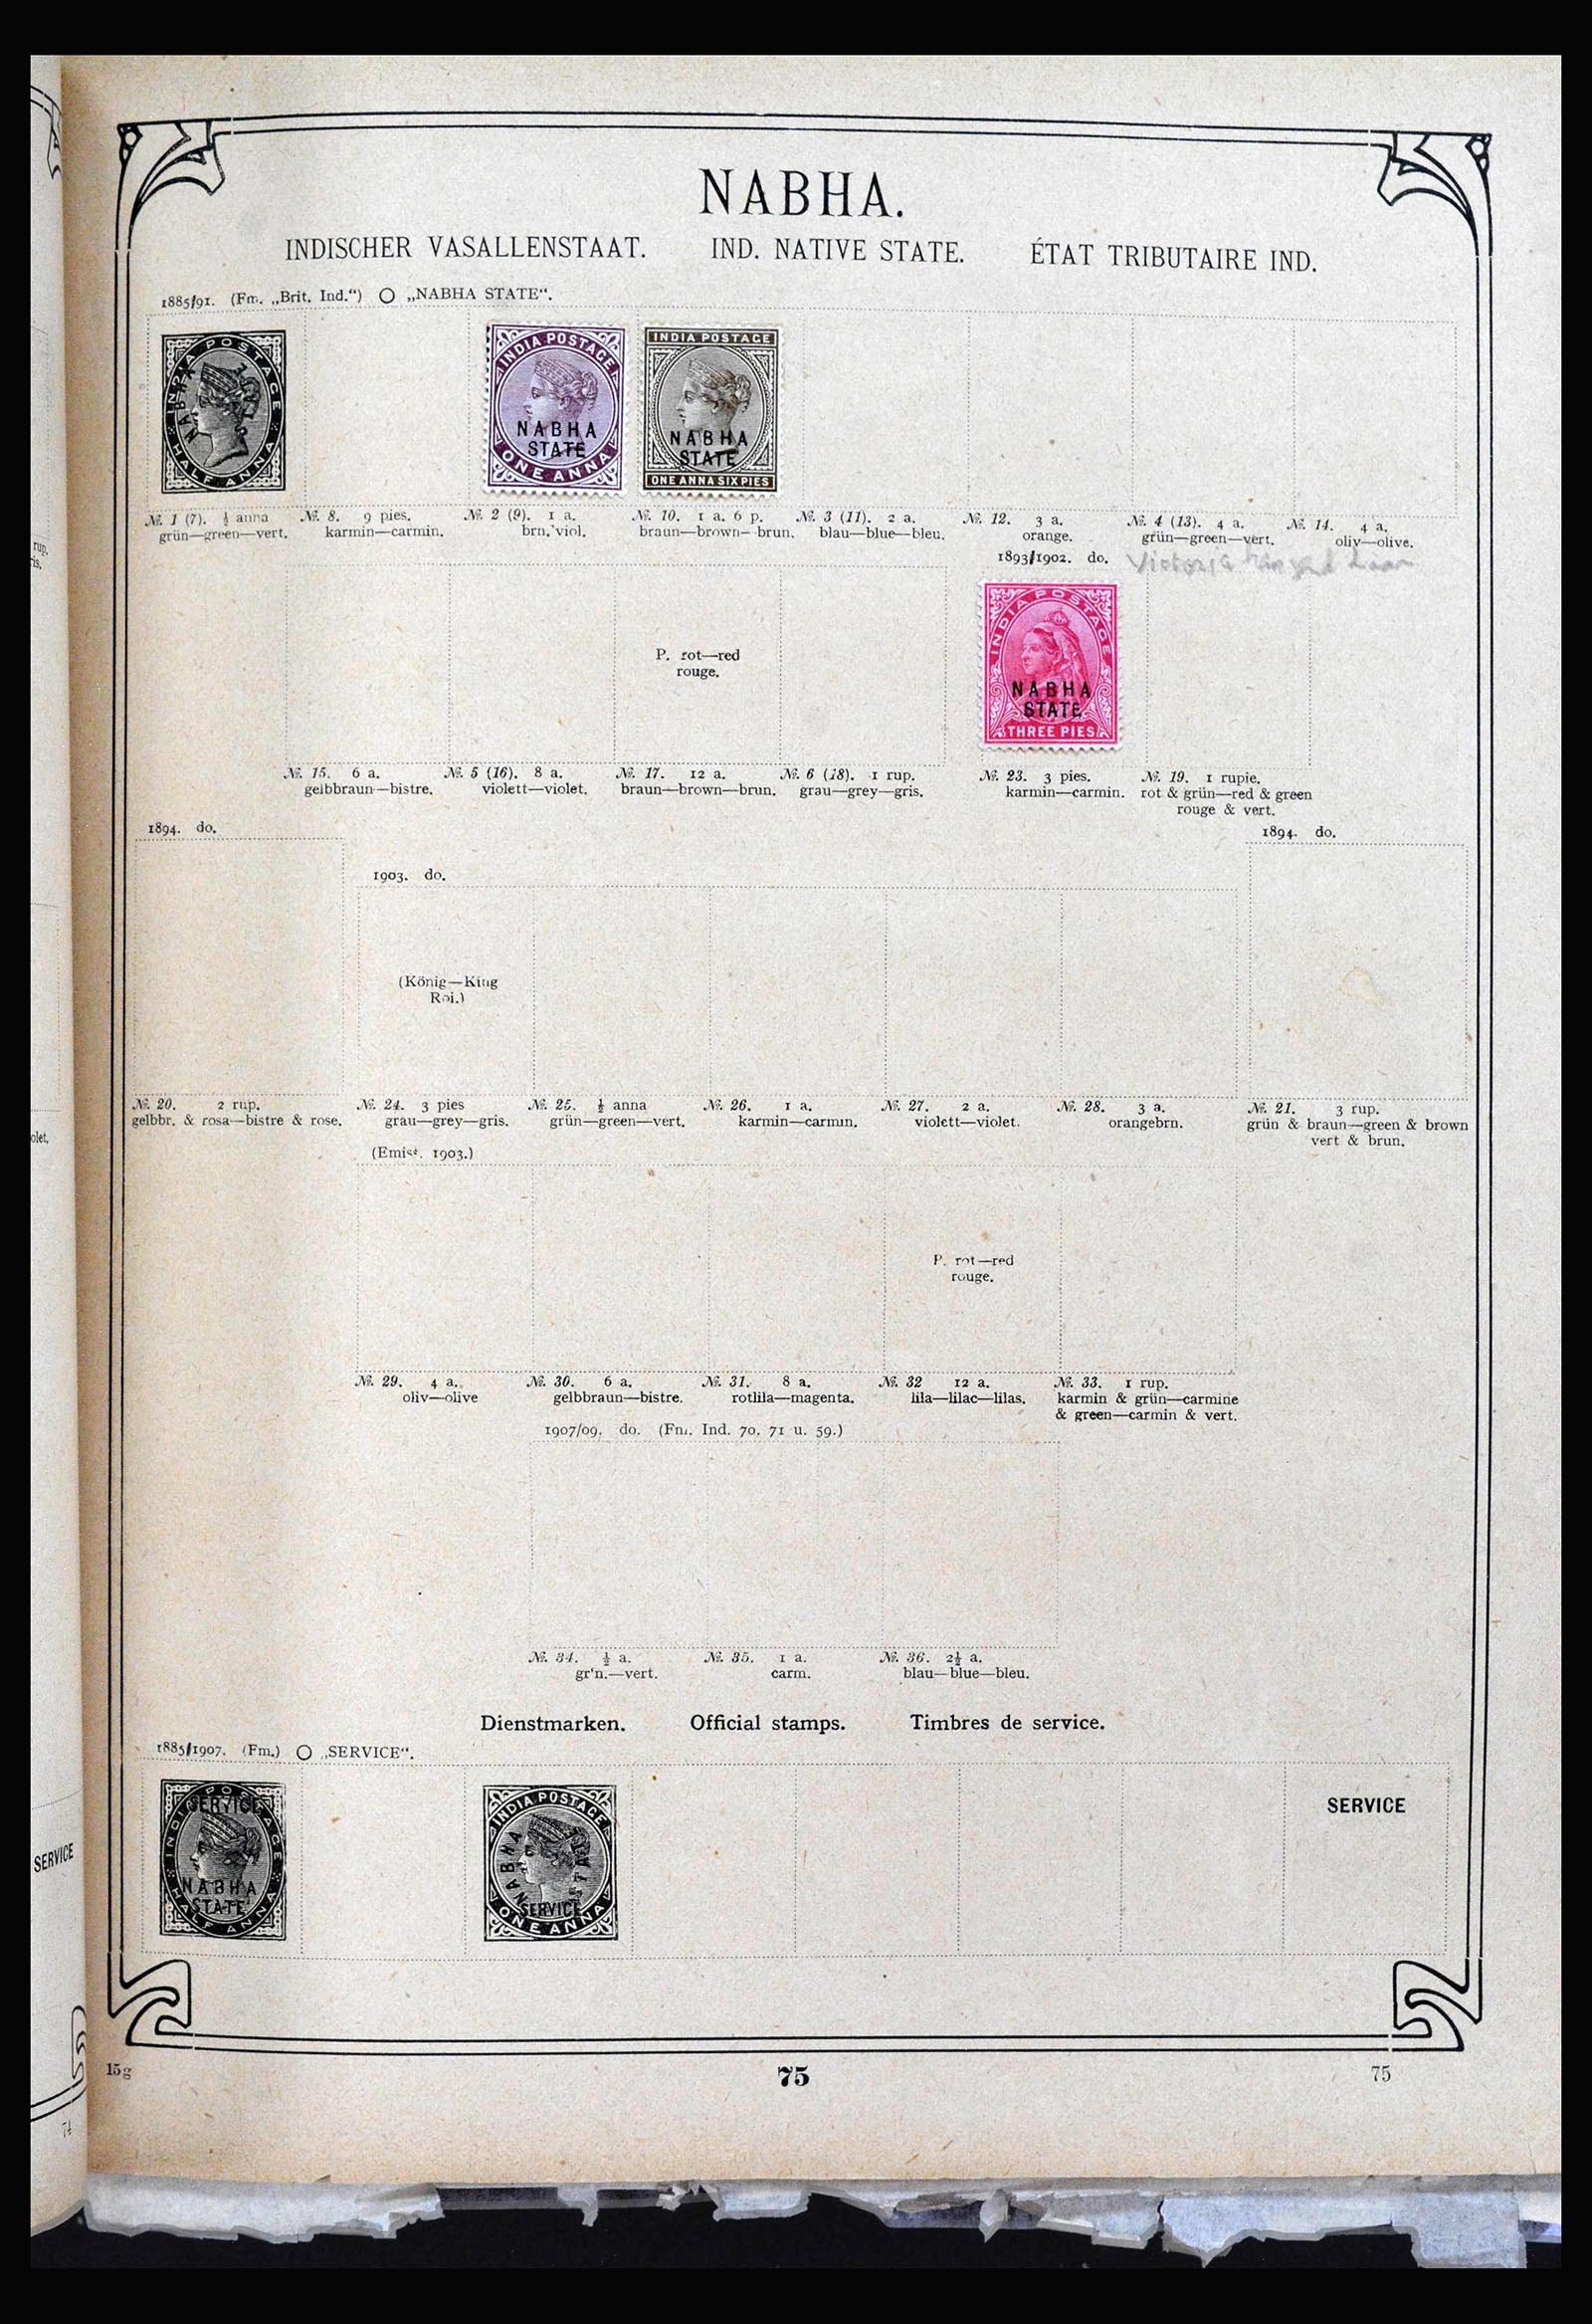 NABHA.
INDISCHER VASALLENSTAAT. IND. NATIVE STATE. ÉTAT TRIBUTAIRE IND.
1885/91. (Fm. „Brit. Ind.“) ◯ „NABHA STATE“.
INDIA POSTAGE
NABHA
HALF ANNA
INDIA POSTAGE
NABHA
STATE
ONE ANNA
INDIA POSTAGE
NABHA
STATE
ONE ANNA SIX PIES
№. 1 (7). ½ anna
grün—green—vert.
№. 8. 9 pies.
karmin—carmin.
№. 2 (9). 1 a.
brn. viol.
№. 10. 1 a. 6 p.
braun—brown—brun.
№. 3 (11). 2 a.
blau—blue—bleu.
№. 12. 3 a.
orange.
№. 4 (13). 4 a.
grün—green—vert.
№. 14. 4 a.
oliv—olive.
1893/1902. do.
Victoria
P. rot—red
rouge.
INDIA POSTAGE
NABHA
STATE
THREE PIES
№. 15. 6 a.
gelbbraun—bistre.
№. 5 (16). 8 a.
violett—violet.
№. 17. 12 a.
braun—brown—brun.
№. 6 (18). 1 rup.
grau—grey—gris.
№. 23. 3 pies.
karmin—carmin.
№. 19. 1 rupie.
rot & grün—red & green
rouge & vert.
1894. do.
1903. do.
1894. do.
(König—King
Roi.)
№. 20. 2 rup.
gelbbr. & rosa—bistre & rose.
№. 24. 3 pies
grau—grey—gris.
№. 25. ½ anna
grün—green—vert.
№. 26. 1 a.
karmin—carmin.
№. 27. 2 a.
violett—violet.
№. 28. 3 a.
orangebrn.
№. 21. 3 rup.
grün & braun—green & brown
vert & brun.
(Emiss. 1903.)
P. rot—red
rouge.
№. 29. 4 a.
oliv—olive
№. 30. 6 a.
gelbbraun—bistre.
№. 31. 8 a.
rotlila—magenta.
№. 32 12 a.
lila—lilac—lilas.
№. 33. 1 rup.
karmin & grün—carmine
& green—carmin & vert.
1907/09. do. (Fm. Ind. 70. 71 u. 59.)
№. 34. ½ a.
gr'n.—vert.
№. 35. 1 a.
carm.
№. 36. 2½ a.
blau—blue—bleu.
Dienstmarken. Official stamps. Timbres de service.
1885/1907. (Fm.) ◯ „SERVICE“.
SERVICE
NABHA
STATE
HALF ANNA
INDIA POSTAGE
NABHA STATE
SERVICE
ONE ANNA
SERVICE
15g 75 75
rup.
is.
olet.
SERVICE
74